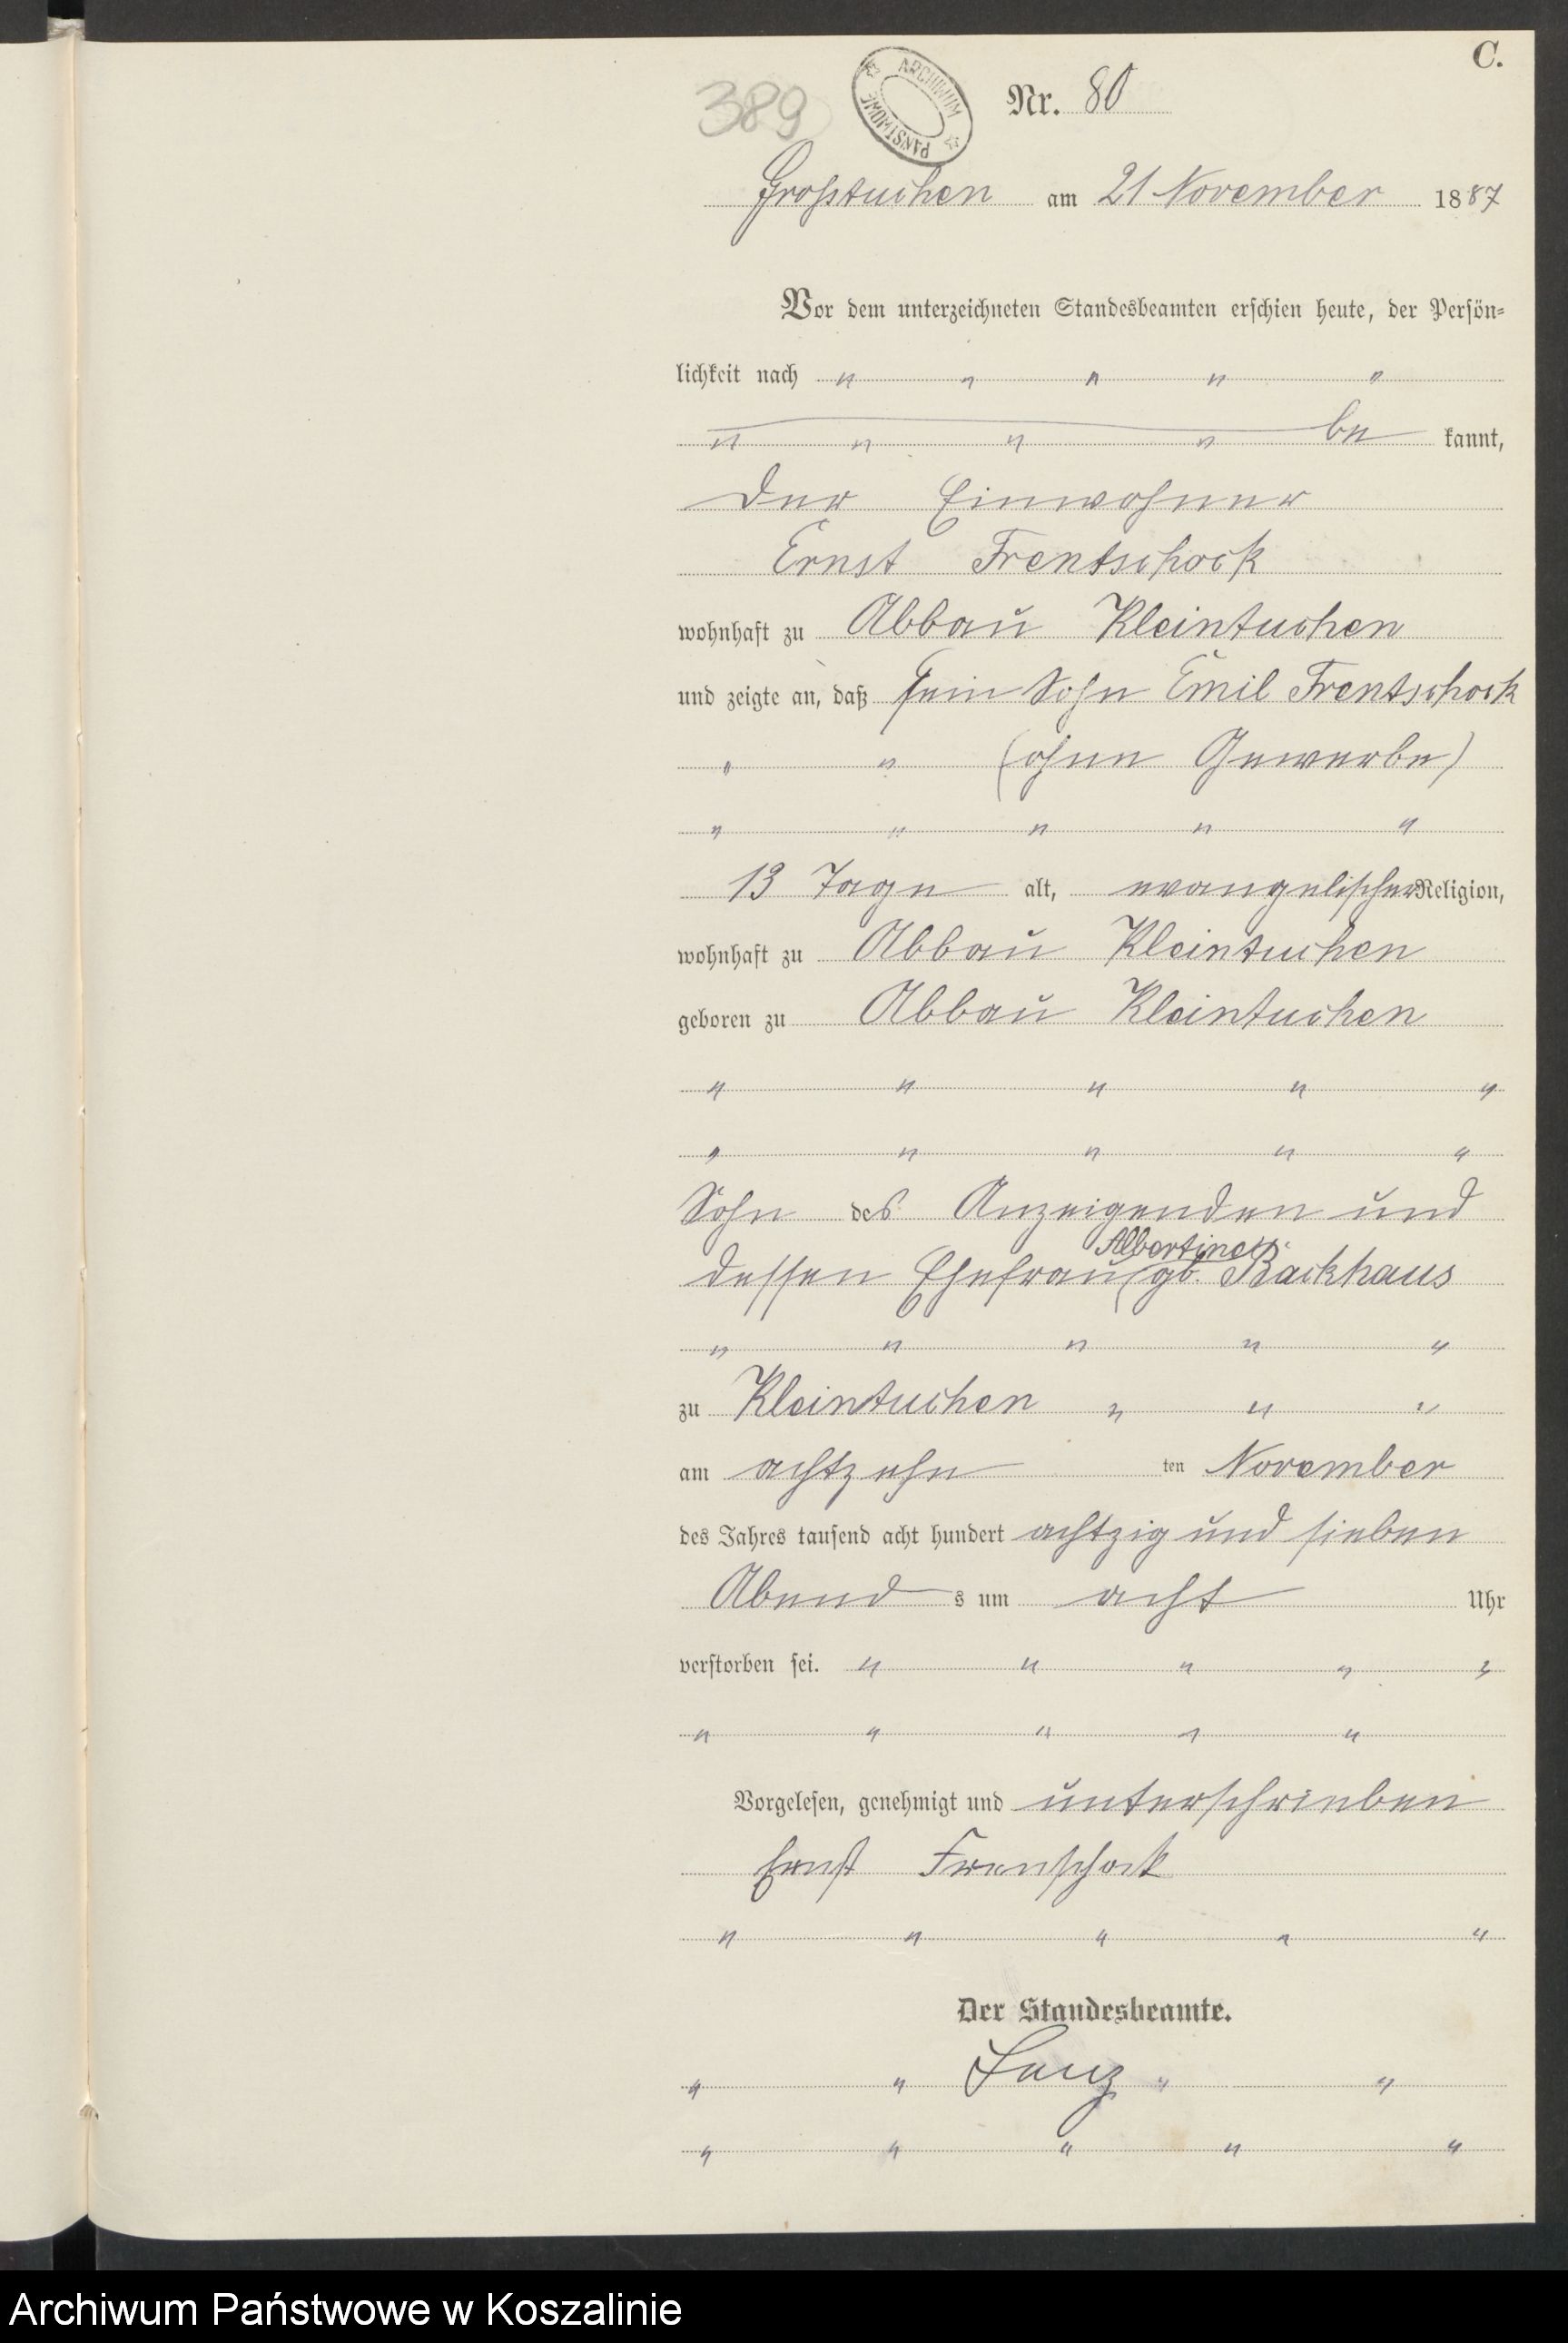 C.
389
ARCHIWUM PAŃSTWOWE
Nr. 80
Großtuchen am 21 November 1887
Vor dem unterzeichneten Standesbeamten erschien heute, der Persön-
lichkeit nach " " " " "
" " " " be kannt,
der Einwohner
Ernst Frentschock
wohnhaft zu Abbau Kleintuchen
und zeigte an, daß sein Sohn Emil Frentschock
" " (ohne Gewerbe)
" " " " "
13 Tage alt, evangelischer Religion,
wohnhaft zu Abbau Kleintuchen
geboren zu Abbau Kleintuchen
" " " " "
" " " " "
Sohn des Anzeigenden und
Albertine
dessen Ehefrau gb. Backhaus
" " " " "
zu Kleintuchen " " "
am achtzehn ten November
des Jahres tausend acht hundert achtzig und sieben
Abend s um acht Uhr
verstorben sei. " " " " "
" " " " "
Vorgelesen, genehmigt und unterschrieben
Ernst Frenschock
" " " " "
Der Standesbeamte.
" " Lenz " "
" " " " "
Archiwum Państwowe w Koszalinie